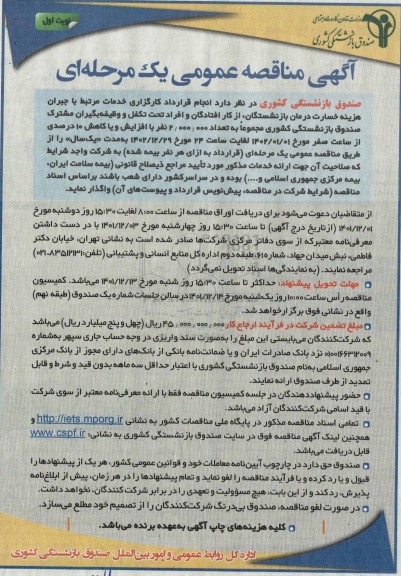 نوبت اول
وزارت تعاون، کار و رفاه اجتماعی
صندوق بازنشستگی کشوری
آگهی مناقصه عمومی یک مرحله‌ای
صندوق بازنشستگی کشوری در نظر دارد انجام قرارداد کارگزاری خدمات مرتبط با جبران
هزینه خسارت درمان بازنشستگان، از کار افتادگان و افراد تحت تکفل و وظیفه‌بگیران مشترک
صندوق بازنشستگی کشوری مجموعاً به تعداد ۲٫۰۰۰٫۰۰۰ نفر با افزایش و یا کاهش ۱۰ درصدی
از ساعت صفر مورخ ۱۴۰۲/۰۱/۰۱ لغایت ساعت ۲۴ مورخ ۱۴۰۲/۱۲/۲۹ به‌مدت «یک‌سال» را از
طریق مناقصه عمومی یک مرحله‌ای (قرارداد به ازای هر نفر بیمه شده) به شرکت واجد شرایط
که صلاحیت آن جهت ارائه خدمات مذکور مورد تأیید مراجع ذیصلاح قانونی (بیمه سلامت ایران،
بیمه مرکزی جمهوری اسلامی و....) بوده و در سراسر کشور دارای شعب باشند براساس اسناد
مناقصه (شرایط شرکت در مناقصه، پیش‌نویس قرارداد و پیوست‌های آن) واگذار نماید.
از متقاضیان دعوت می‌شود برای دریافت اوراق مناقصه از ساعت ۸:۰۰ لغایت ۱۵:۳۰ روز دوشنبه مورخ
۱۴۰۱/۱۲/۰۱ (از تاریخ درج آگهی) تا ساعت ۱۵:۳۰ روز چهارشنبه مورخ ۱۴۰۱/۱۲/۰۳ با در دست داشتن
معرفی‌نامه معتبر که از سوی دفاتر مرکزی شرکت‌ها صادر شده است به نشانی تهران، خیابان دکتر
فاطمی، نبش میدان جهاد، شماره ۶۱، طبقه دوم اداره کل منابع انسانی و پشتیبانی (تلفن: ۸۳۵۱۲۱۳۱-۰۲۱)
مراجعه نمایند. (به نمایندگی‌ها اسناد تحویل نمی‌گردد)
مهلت تحویل پیشنهاد: حداکثر تا ساعت ۱۵:۳۰ روز شنبه مورخ ۱۴۰۱/۱۲/۱۳ می‌باشد. کمیسیون
مناقصه رأس ساعت ۱۰:۰۰ روز یک‌شنبه مورخ ۱۴۰۱/۱۲/۱۴ در سالن جلسات شماره یک صندوق (طبقه نهم)
واقع در نشانی فوق برگزار خواهد شد.
مبلغ تضمین شرکت در فرآیند ارجاع کار ۴۵٫۰۰۰٫۰۰۰٫۰۰۰ ریال (چهل و پنج میلیارد ریال) می‌باشد
که شرکت‌کنندگان می‌بایستی این مبلغ را به‌صورت سند واریزی در وجه حساب جاری سپهر به‌شماره
نزد بانک صادرات ایران و یا ضمانت‌نامه بانکی از بانک‌های دارای مجوز از بانک مرکزی
جمهوری اسلامی به‌نام صندوق بازنشستگی کشوری با اعتبار حداقل سه ماهه بدون قید و شرط و قابل
تمدید از طرف صندوق ارائه نمایند.
حضور پیشنهاددهندگان در جلسه کمیسیون مناقصه فقط با ارائه معرفی‌نامه معتبر از سوی شرکت
با قید اسامی شرکت‌کنندگان آزاد می‌باشد.
تمامی اسناد مناقصه مذکور در پایگاه ملی مناقصات کشور به نشانی http://iets.mporg.ir و
همچنین لینک آگهی مناقصه فوق در سایت صندوق بازنشستگی کشوری به نشانی: www.cspf.ir
قابل دریافت می‌باشد.
صندوق حق دارد در چارچوب آیین‌نامه معاملات خود و قوانین عمومی کشور، هر یک از پیشنهادها را
قبول و یا رد کرده و یا فرآیند مناقصه را لغو نماید و تمام پیشنهادها را در هر زمان، پیش از ابلاغ‌نامه
پذیرش، رد کند و از این بابت، هیچ مسؤولیت و تعهدی را در برابر شرکت کنندگان، نخواهد داشت.
در صورت لغو مناقصه، صندوق بی‌درنگ شرکت‌کنندگان را از تصمیم خود مطلع می‌سازد.
کلیه هزینه‌های چاپ آگهی به‌عهده برنده می‌باشد.
اداره کل روابط عمومی و امور بین‌الملل صندوق بازنشستگی کشوری